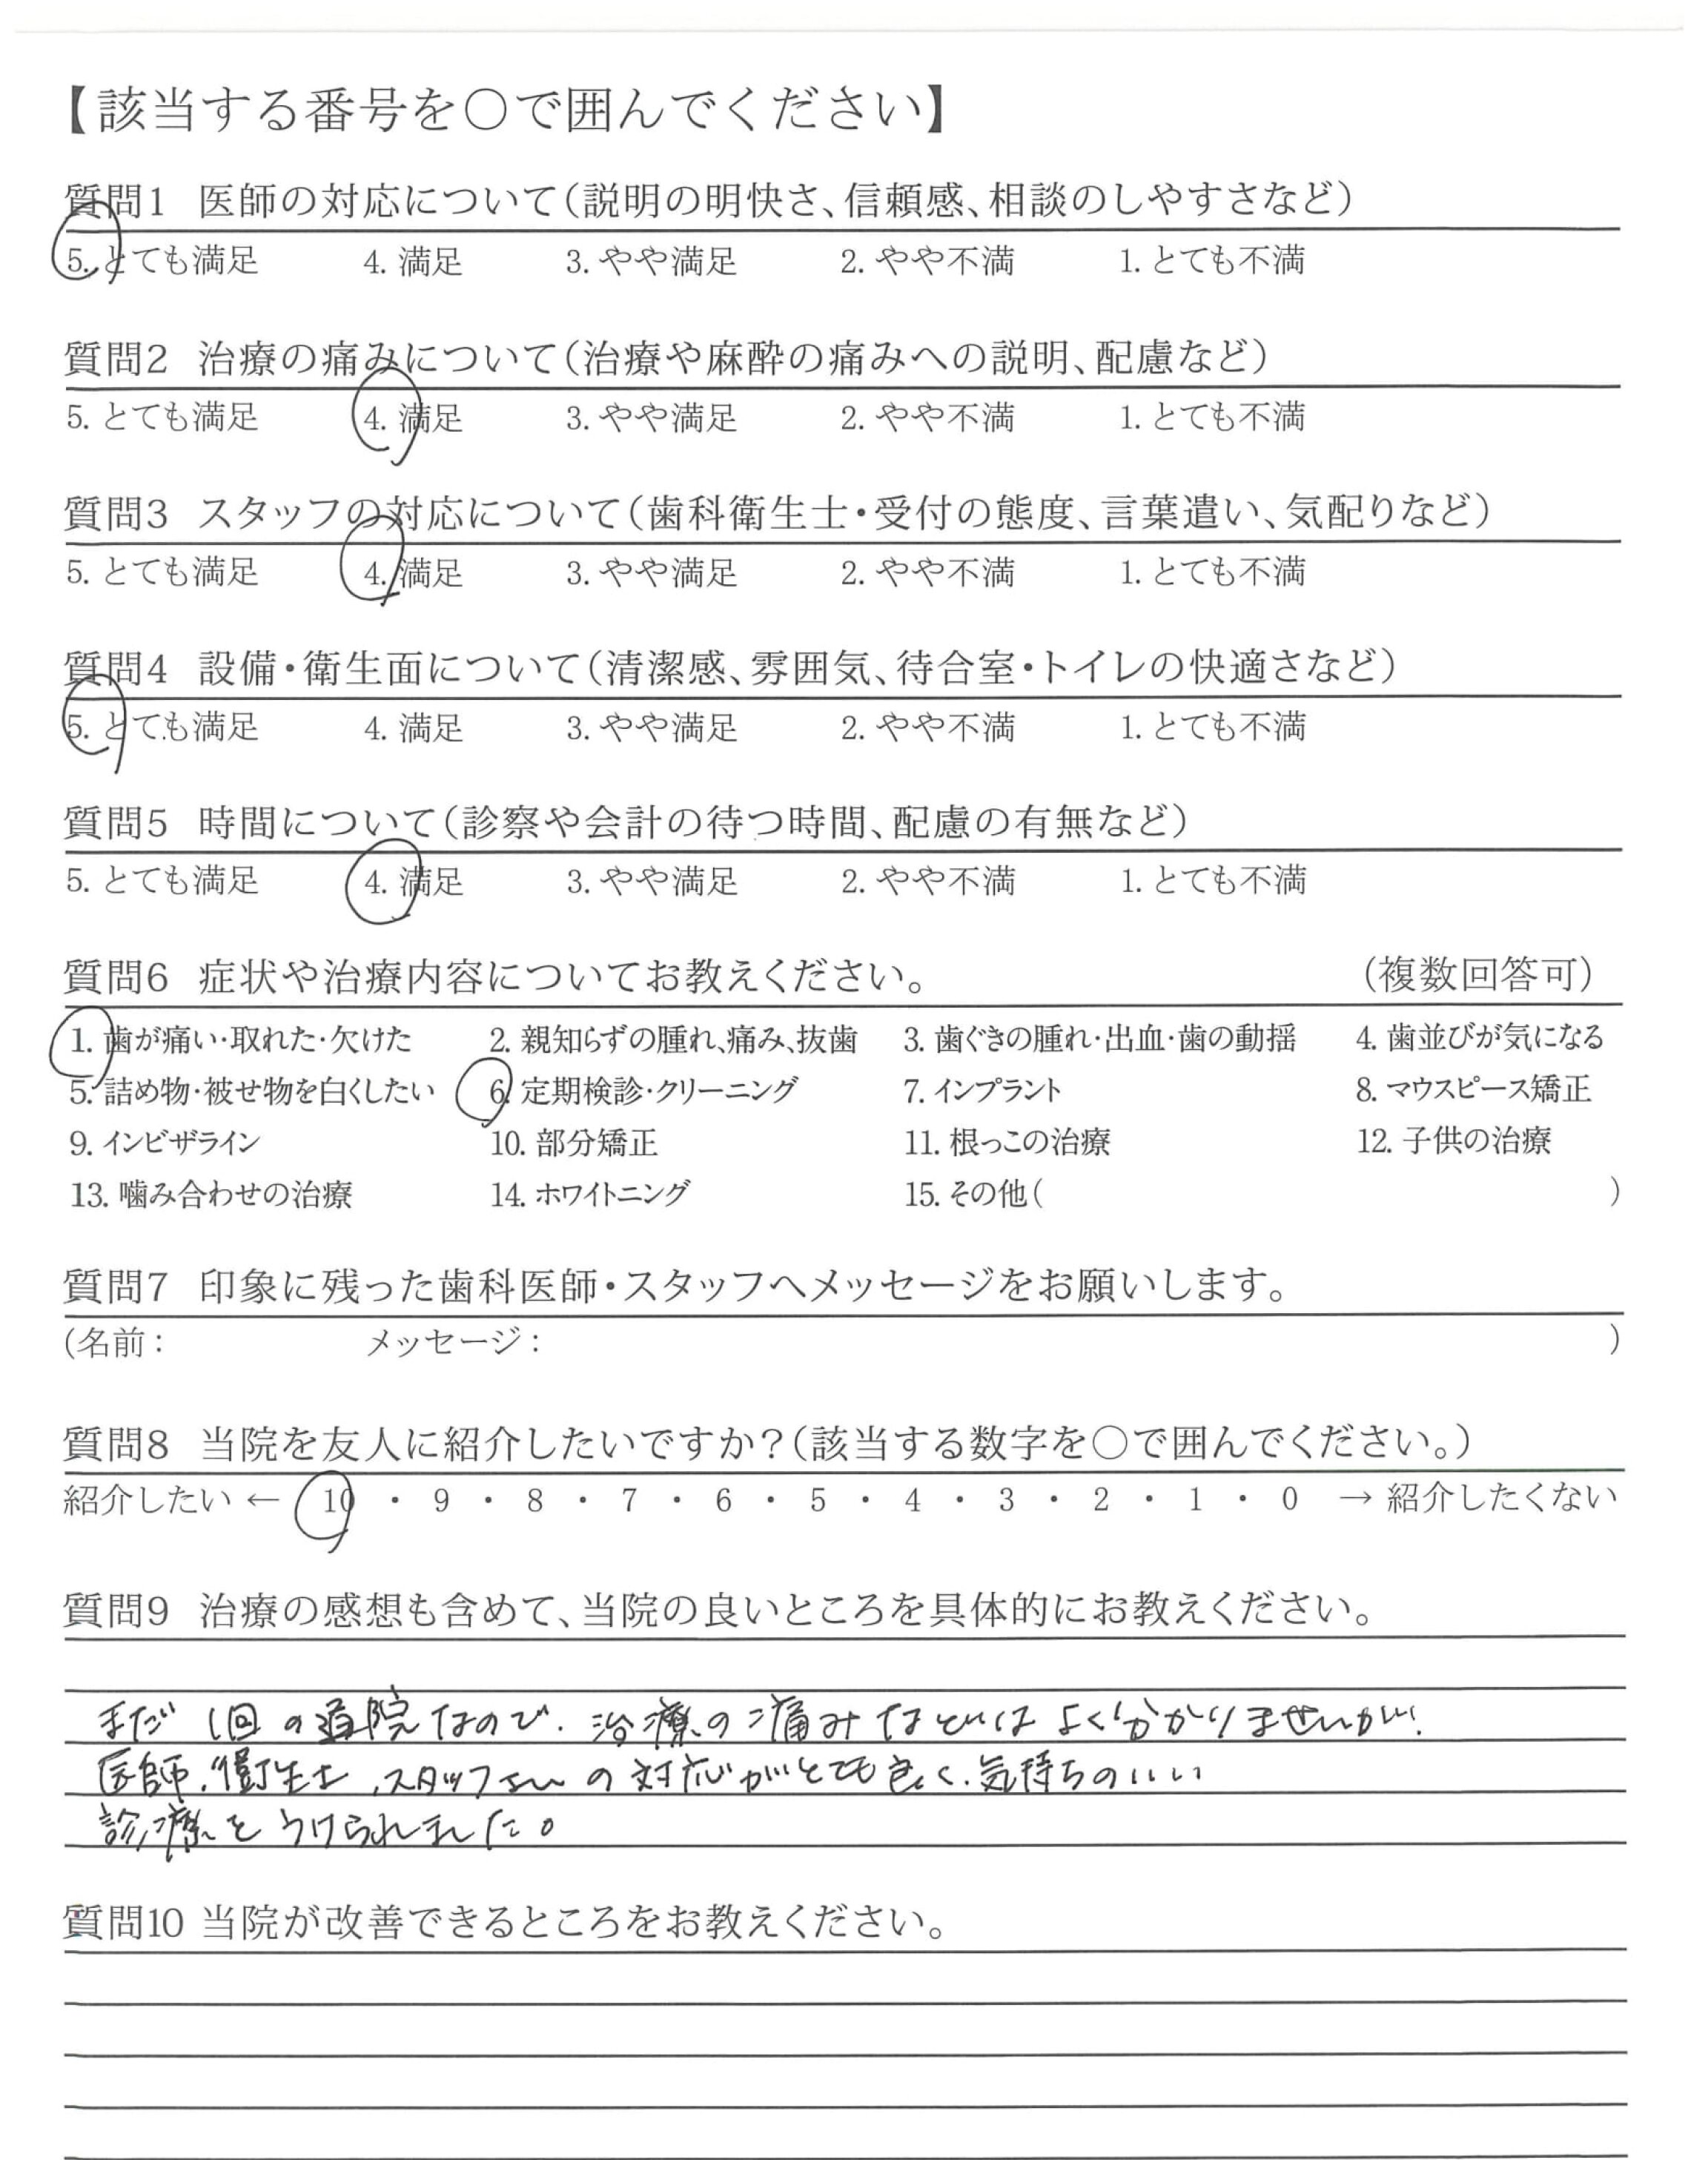 【該当する番号を○で囲んでください】
質問1 医師の対応について(説明の明快さ、信頼感、相談のしやすさなど)
5. とても満足 4. 満足 3. やや満足 2. やや不満 1. とても不満
質問2 治療の痛みについて(治療や麻酔の痛みへの説明、配慮など)
5. とても満足 4. 満足 3. やや満足 2. やや不満 1. とても不満
質問3 スタッフの対応について(歯科衛生士・受付の態度、言葉遣い、気配りなど)
5. とても満足 4. 満足 3. やや満足 2. やや不満 1. とても不満
質問4 設備・衛生面について(清潔感、雰囲気、待合室・トイレの快適さなど)
5. とても満足 4. 満足 3. やや満足 2. やや不満 1. とても不満
質問5 時間について(診察や会計の待つ時間、配慮の有無など)
5. とても満足 4. 満足 3. やや満足 2. やや不満 1. とても不満
質問6 症状や治療内容についてお教えください。 (複数回答可)
1. 歯が痛い・取れた・欠けた 2. 親知らずの腫れ、痛み、抜歯 3. 歯ぐきの腫れ・出血・歯の動揺 4. 歯並びが気になる
5. 詰め物・被せ物を白くしたい 6. 定期検診・クリーニング 7. インプラント 8. マウスピース矯正
9. インビザライン 10. 部分矯正 11. 根っこの治療 12. 子供の治療
13. 噛み合わせの治療 14. ホワイトニング 15. その他( )
質問7 印象に残った歯科医師・スタッフへメッセージをお願いします。
(名前: メッセージ: )
質問8 当院を友人に紹介したいですか?(該当する数字を○で囲んでください。)
紹介したい ← 10 ・ 9 ・ 8 ・ 7 ・ 6 ・ 5 ・ 4 ・ 3 ・ 2 ・ 1 ・ 0 → 紹介したくない
質問9 治療の感想も含めて、当院の良いところを具体的にお教えください。
まだ1回の通院なので、治療の痛みなどはよく分かりませんが、
医師、衛生士、スタッフさんの対応がとても良く、気持ちのいい
診療をうけられました。
質問10 当院が改善できるところをお教えください。